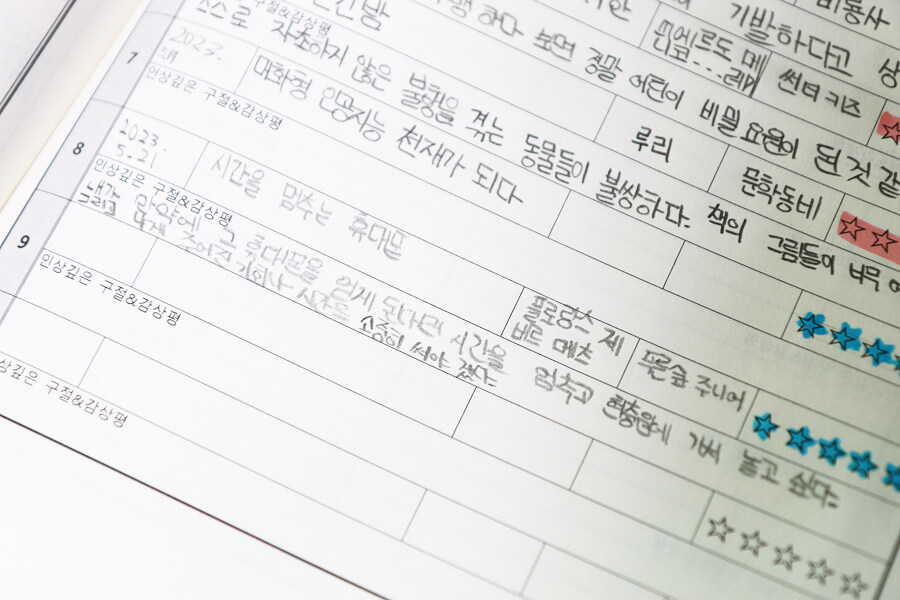 기발하다고
비룡사
하다 보면 정말 어린이 비밀 요원이 된 것 같
씬터키즈
스스로 자초하지 않은 불행을 겪는 동물들이 불쌍하다. 책의 그림들이 너무
7
2023.
만화형 인공지능 천재가 되다
루리
문학동네
인상깊은 구절&감상평
8
2023.
5.21
시간을 멈추는 휴대폰
플로랑스 제
바르 메츠
푸른숲 주니어
인상깊은 구절&감상평
내가 만약에 그 휴대폰을 얻게 된다면 시간을 멈추고 현충원에 가서 놀고 싶다.
그리고 나에게 주어진 기회나 시간은 소중히 써야겠다.
9
인상깊은 구절&감상평
인상깊은 구절&감상평